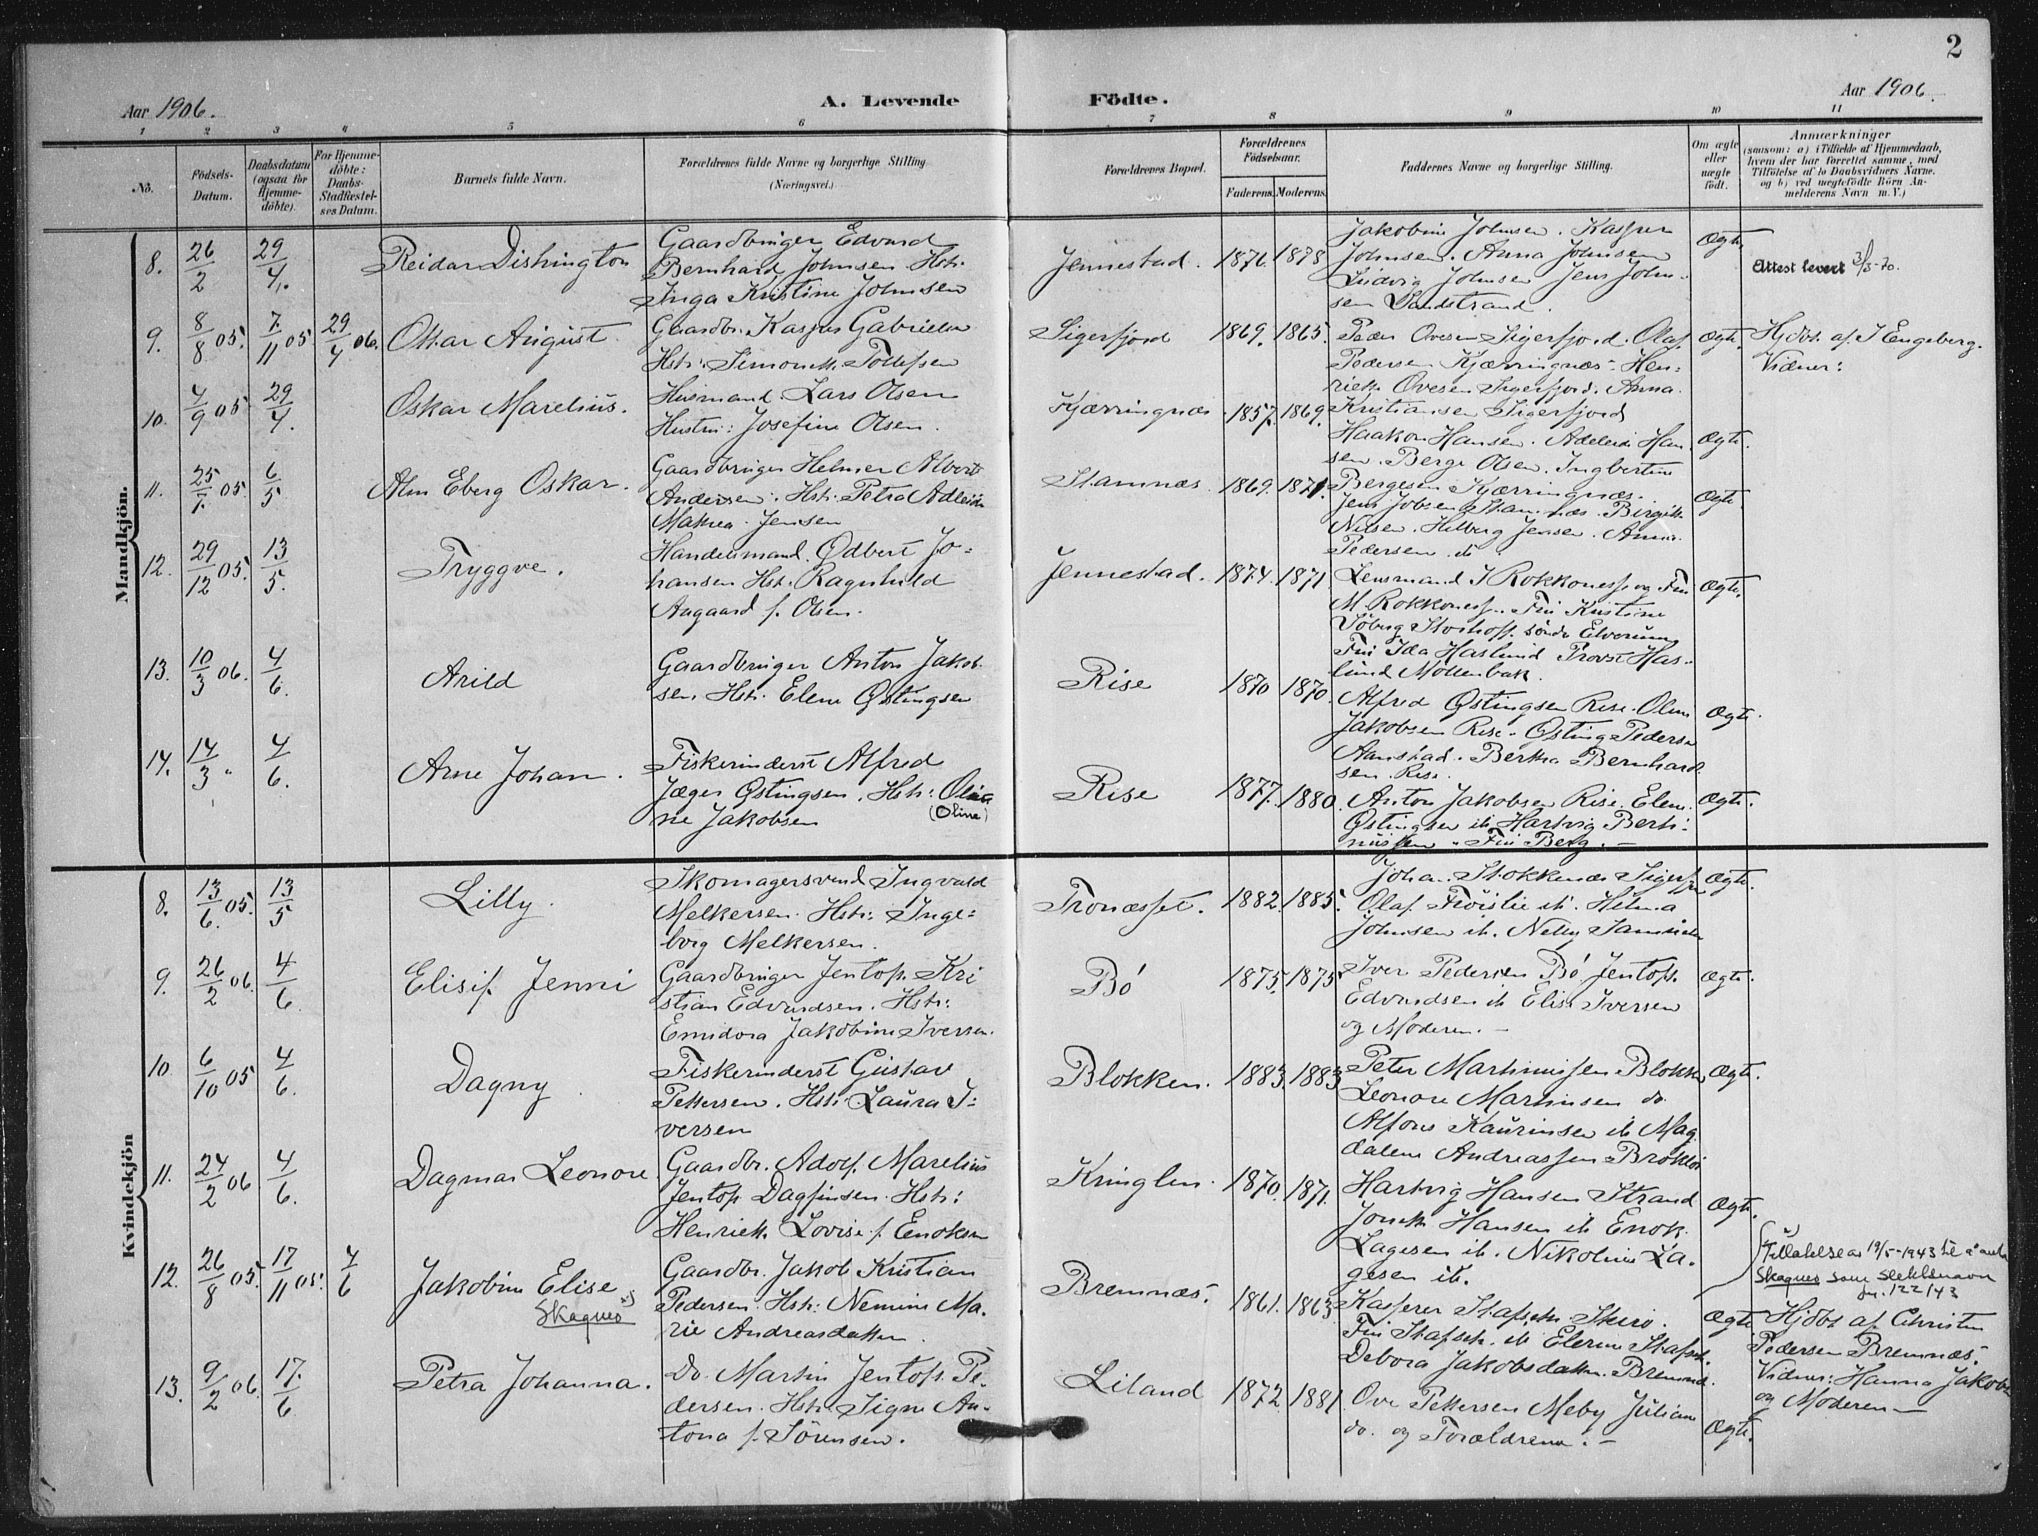 2
Aar 1906.
A. Levende
Födte.
Aar 1906.
1 2 3 4 5 6 7 8 9 10 11
No.
Födsels-
Datum.
Daabsdatum
(ogsaa for
Hjemme-
döbte).
For Hjemme-
döbte:
Daabs-
Stadfæstel-
ses Datum.
Barnets fulde Navn.
Forældrenes fulde Navne og borgerlige Stilling
(Næringsvei).
Forældrenes Bopæl.
Forældrenes
Födselsaar.
Faderens. Moderens.
Faddernes Navne og borgerlige Stilling.
Om ægte
eller
uægte
födt.
Anmærkninger
(saasom: a) i Tilfælde af Hjemmedaab,
hvem der har forrettet samme, med
Tilföielse af to Daabsvidners Navne,
og b) ved uegtefödte Börn An-
melderens Navn m. V.)
Mandkjön.
8. 26/2 29/4. Reidar Dishington
Gaardbruger Edvard
Bernhard Johnsen. Hstr.
Inga Kristine Johnsen
Jennestad. 1871. 1878
Jakobine Johnsen. Kasper
Johnsen. Anna Johnsen
Ludvig Johnsen Jens John-
sen Sandstrand.
Ægte
Attest levert 3/3-70.
9. 8/8 05. 7/11 05 29/4 06. Oskar August.
Gaardbr. Kaspar Gabrielsen
Hstr: Simonette Tollefsen
Sigerfjord 1869. 1865.
Peder Ovesen Sigerfjord. Olaf
Pedersen Kjærringnæs. Hen-
rikke Ovesen Sigerfjord. Anna
Kristiansen Sigerfjord
Ægte.
Hjdbt af. J Engeberg.
Vidner:
10. 4/9 05 29/4. Oskar Marelius.
Huusmand Lars Olsen
Hustru: Josefine Olsen.
Kjærringnæs 1857. 1869.
Haakon Hansen. Adeleide Han-
sen. Berge Olsen. Ingbertine
Bergesen Kjærringnæs.
Ægte.
11. 25/7. 05 6/5 Alm Eberg Oskar.
Gaardbruger Helmer Albert
Andersen. Hstr. Petra Adleide
Makrea Jensen
Stamnæs. 1869. 1871.
Jens Jobsen Stamnæs. Birgitte
Nilsen. Hilberg Jensen. Anna
Pedersen. ib
Ægte
12. 29/12 05. 13/5. Tryggve.
Handelsmand. Odbert Jo-
hansen Hst. Ragnhild
Aagaard f. Olsen.
Jennestad. 1874. 1871
Lensmand J Rokkones og Fru
M. Rokkones. Fru Kristine
Söberg Storhoff. söndre Elverum
Fru Ida Haslund Provst Has-
lund Mollenbakk.
Ægte.
13. 10/3 06. 4/6. Arild
Gaardbruger Anton Jakob-
sen Hstr. Elene Östingsen
Rise 1870 1870.
Alfred Østingsen Rise. Oline
Jakobsen Rise. Östing Pederse
Aanstad. Berthe Bernhard
sen. Rise.
Ægte.
14. 14/3 " 4/6. Arne Johan.
Fiskerinderst Alfred
Jæger Østingsen. Hstr: Olina
ne Jakobsen (Oline)
Rise 1877. 1880.
Anton Jakobsen Rise. Elene
Østingsen ib. Hartvig Berti-
nussen. Fru Berg. —
Ægte.
Kvindekjön
8. 13/6. 05. 13/5 Lilly.
Skomagersvend Ingvald
Melkersen. Hstr: Inge-
borg Melkersen.
Tronæsset. 1882. 1885.
Johan Stokkenæs Sigerfj
Olaf ib. Helma
Johnsen ib. Nelly
Ægte.
9. 26/2 06. 4/6. Elisif Jenni
Gaardbruger Jentof. Kri
stian Edvardsen. Hstr:
Emidora Jakobine Iversen.
Bö 1875. 1875
Iver Pedersen Bö. Jentoft
Edvardsen ib Elise Iversen
og Moderen. —
Ægte.
10. 6/10 05 4/6. Dagny
Fiskerinderst Gustav
Pettersen. Hstr. Laura I-
versen
Blokken. 1883. 1883
Peter Martinussen Blokken
Leonore Martinsen do
Alfons Kaurinsen ib Mag
dalene Andreassen Brokløs
Ægte.
11. 24/2 06 4/6. Dagmar Leonore
Gaardbr. Adolf Marelius
Jentof. Dagfinsen. Hstr:
Henriette Lovise f. Enoksen
Kringlen. 1870. 1871.
Hartvig Hansen Strand
Jonette Hansen ib Enok.
Lagesen ib. Nikoline La-
gesen ib.
Ægte.
12. 26/8 05. 17/11 05. 4/6 Jakobine Elise
Skagnes
Gaardbr. Jakob Kristian
Pedersen. Hstr: Nemine Ma-
rie Andreasdatter.
Bremnæs. 1861. 1863
Kasperer Stafseth Skirö.
Fru Stafseth. ib Elerine Stafset.
Debora Jakobsdatter. Bremnæs.
Ægte
Tillatelse av 19/5-1943 til å anta
Skagnes som slektsnavn
jn. 122/43
Hjdbt af Christen
Pedersen Bremnæs.
Vidner: Hanna Jakobs
og Moderen —
13. 9/2 06. 17./6 Petra Johanna.
Do. Martin Jentoft Pe-
dersen. Hstr. Signe An-
tona f. Sörensen.
Liland 1872. 1881
Ove Pettersen Meby Juliane
do. og Forældrene. —
Ægte.